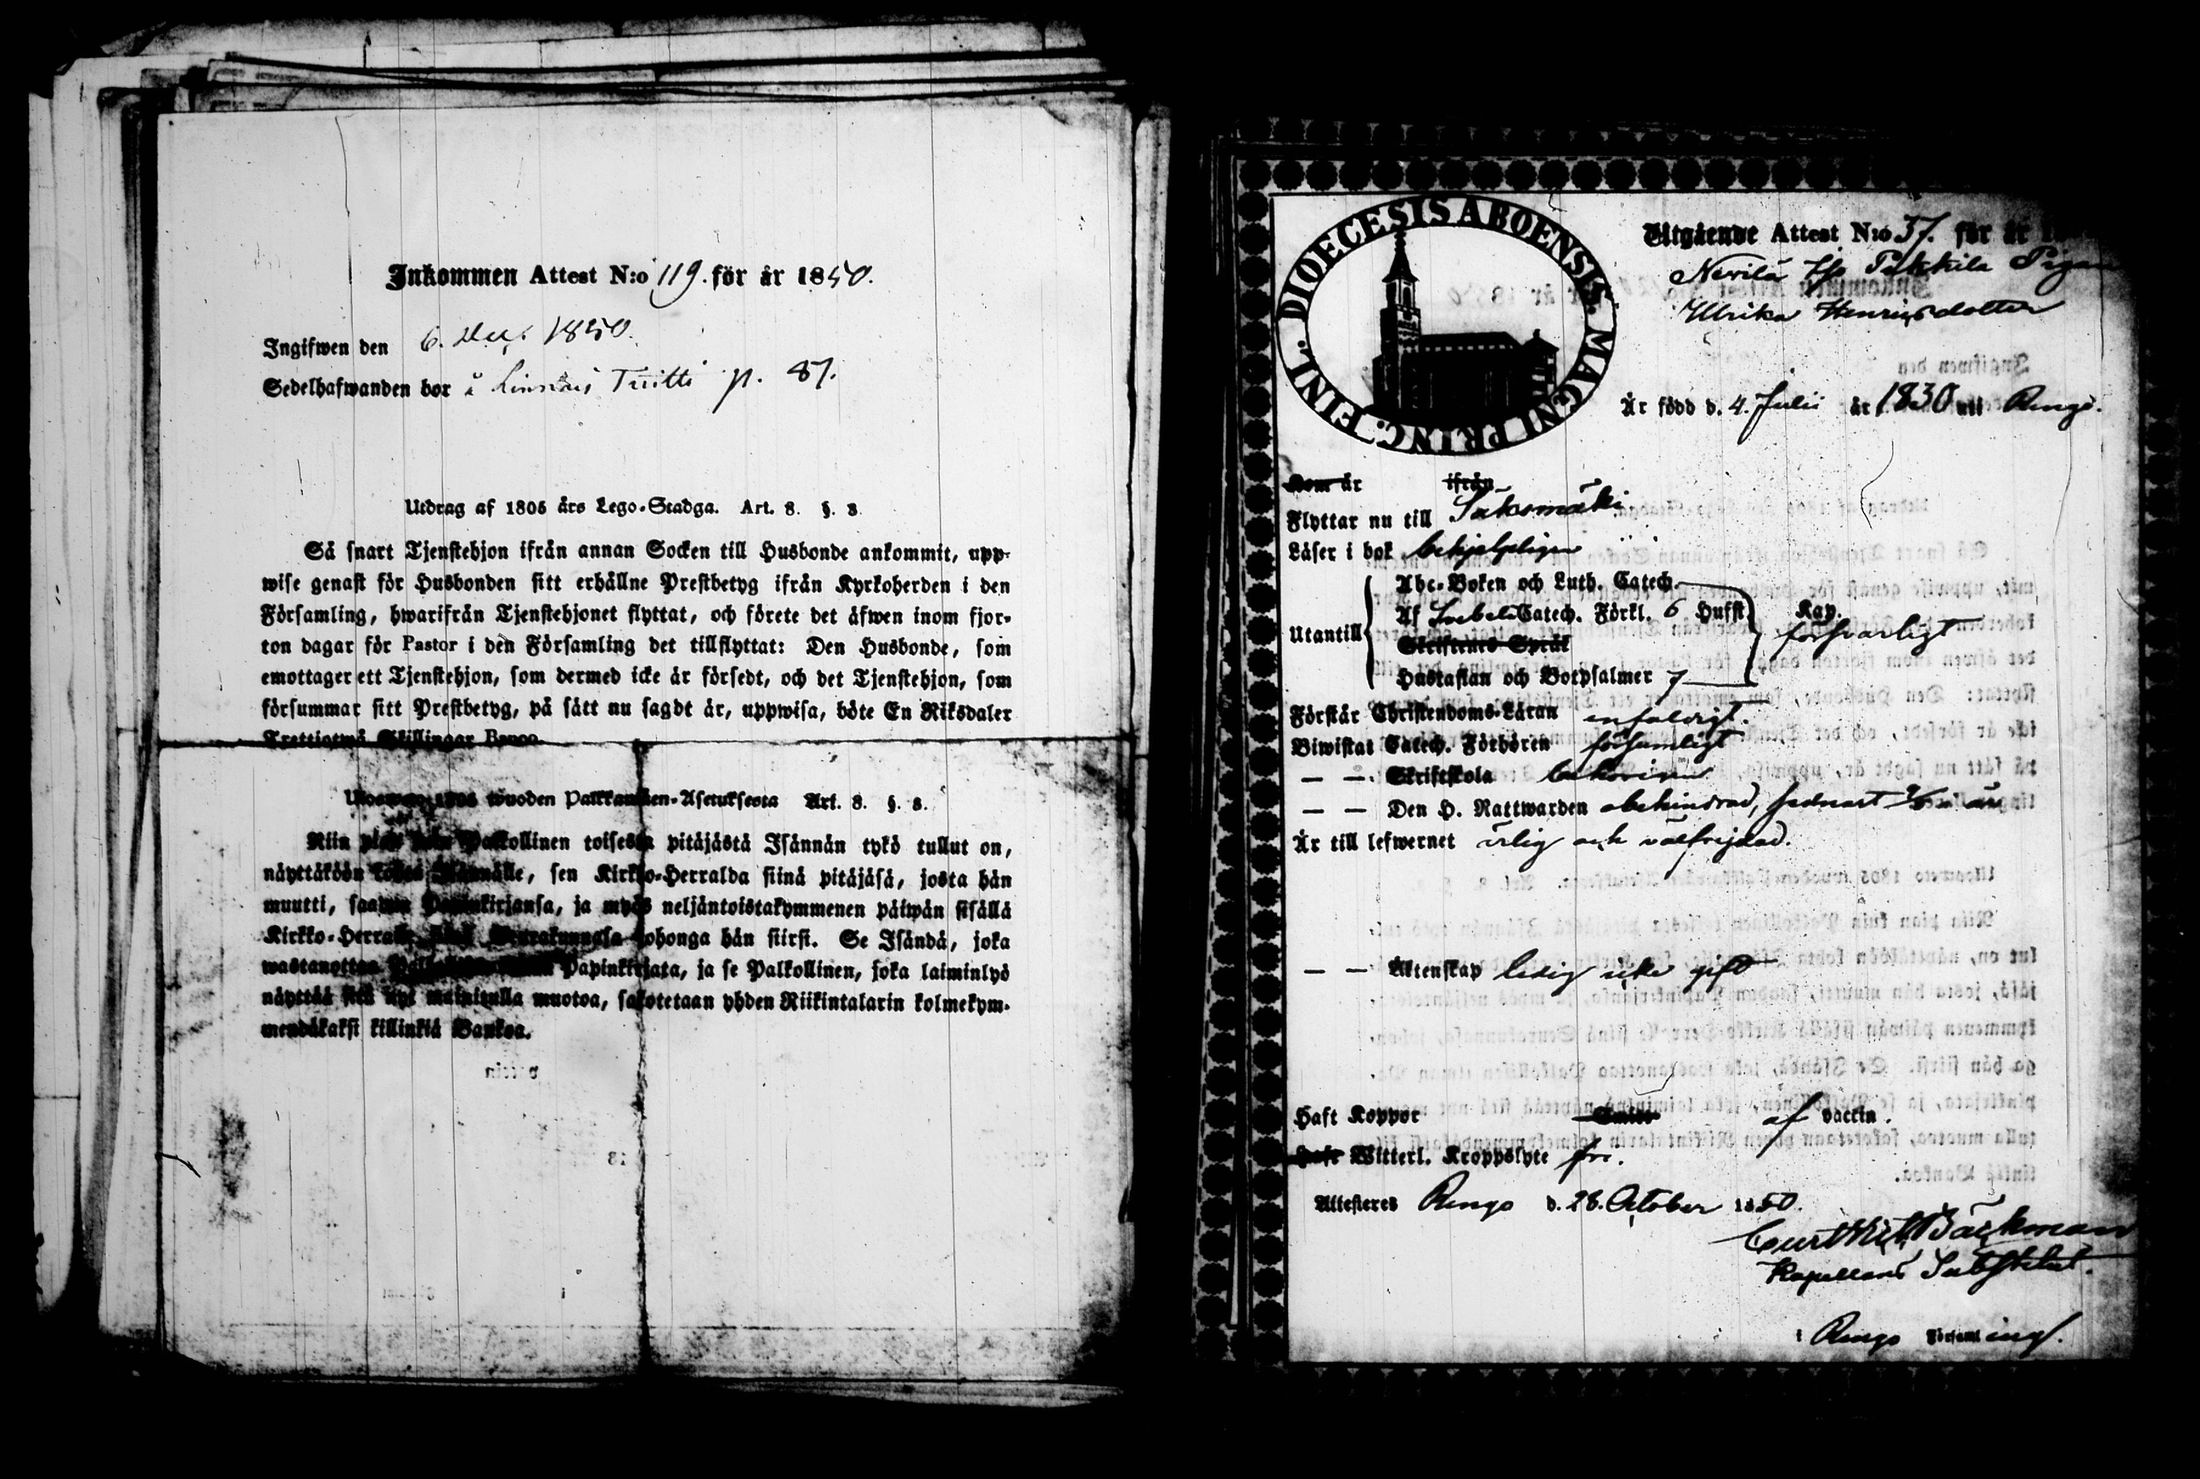 Inkommen Attest N:o 119. för år 1850.
Ingifwen den 6. 1850.
Sedelhafwanden bor å p. 87.
Utdrag af 1805 års Lego-Stadga. Art. 8. §. 8.
Så snart Tjenstehjon ifrån annan Socken till Husbonde ankommit, upp-
wise genast för Husbonden sitt erhållne Prestbetyg ifrån Kyrkoherden i den
Församling, hwarifrån Tjenstehjonet flyttat, och förete det äfwen inom fjor-
ton dagar för Pastor i den Församling det tillflyttat: Den Husbonde, som
emottager ett Tjenstehjon, som dermed icke är försedt, och det Tjenstehjon, som
försummar sitt Prestbetyg, på sätt nu sagdt är, uppwisa, böte En Riksdaler
Trettiotwå Skillingar Banco.
1805 wuoden Palkkausten-Asetuksesta Art. 8. §. 8.
Niin pian kuin Palkollinen toisesta pitäjästä Isännän tykö tullut on,
näyttäköön kohta Isännälle, sen Kirkko-Herralda siinä pitäjäsä, josta hän
muutti, saadun Papinkirjansa, ja myös neljäntoistakymmenen päiwän sisällä
Kirkko-Herralle siinä Seurakunnasa johonga hän siirsi. Se Isändä, joka
wastanottaa Palkollisen Papinkirjata, ja se Palkollinen, joka laiminlyö
näyttää sitä nyt mainitulla muotoa, sakotetaan yhden Riikintalarin kolmekym-
mendäkaksi killinkiä Bankoa.
DIOECESIS ABOENSIS. MAGNI PRINC. FINL.
Utgående Attest N:o 37. för år
Nerilä Pukkila Pigan
Ulrika Henriksdotter
Är född d. 4. Julii år 1830 uti Rengo.
Kom år ifrån
Flyttar nu till Saksmäki
Läser i bok behjelpligen
Utantill
Abc-Boken och Luth. Catech.
Af Svebeli Catech. Förkl. 6 Hufst. Kap.
försvarligt
Skriftenes Språk
Hustaflan och Botpsalmer 7
Förstår Christendoms-Läran enfaldigt.
Biwistat Catech. Förhören försumligt
— — Skriftskola bekoriven
— — Den H. Nattwarden obehindrad, sednast i år
Är till lefwernet ärlig och välfrejdad.
— — Äktenskap ledig icke gift
Haft Koppor af vaccin.
Haft Witterl. Kroppslyte fri.
Attesteres Rengo d. 28. October 1850.
Bäckman
Kapellans Substitut.
i Rengo Församling.